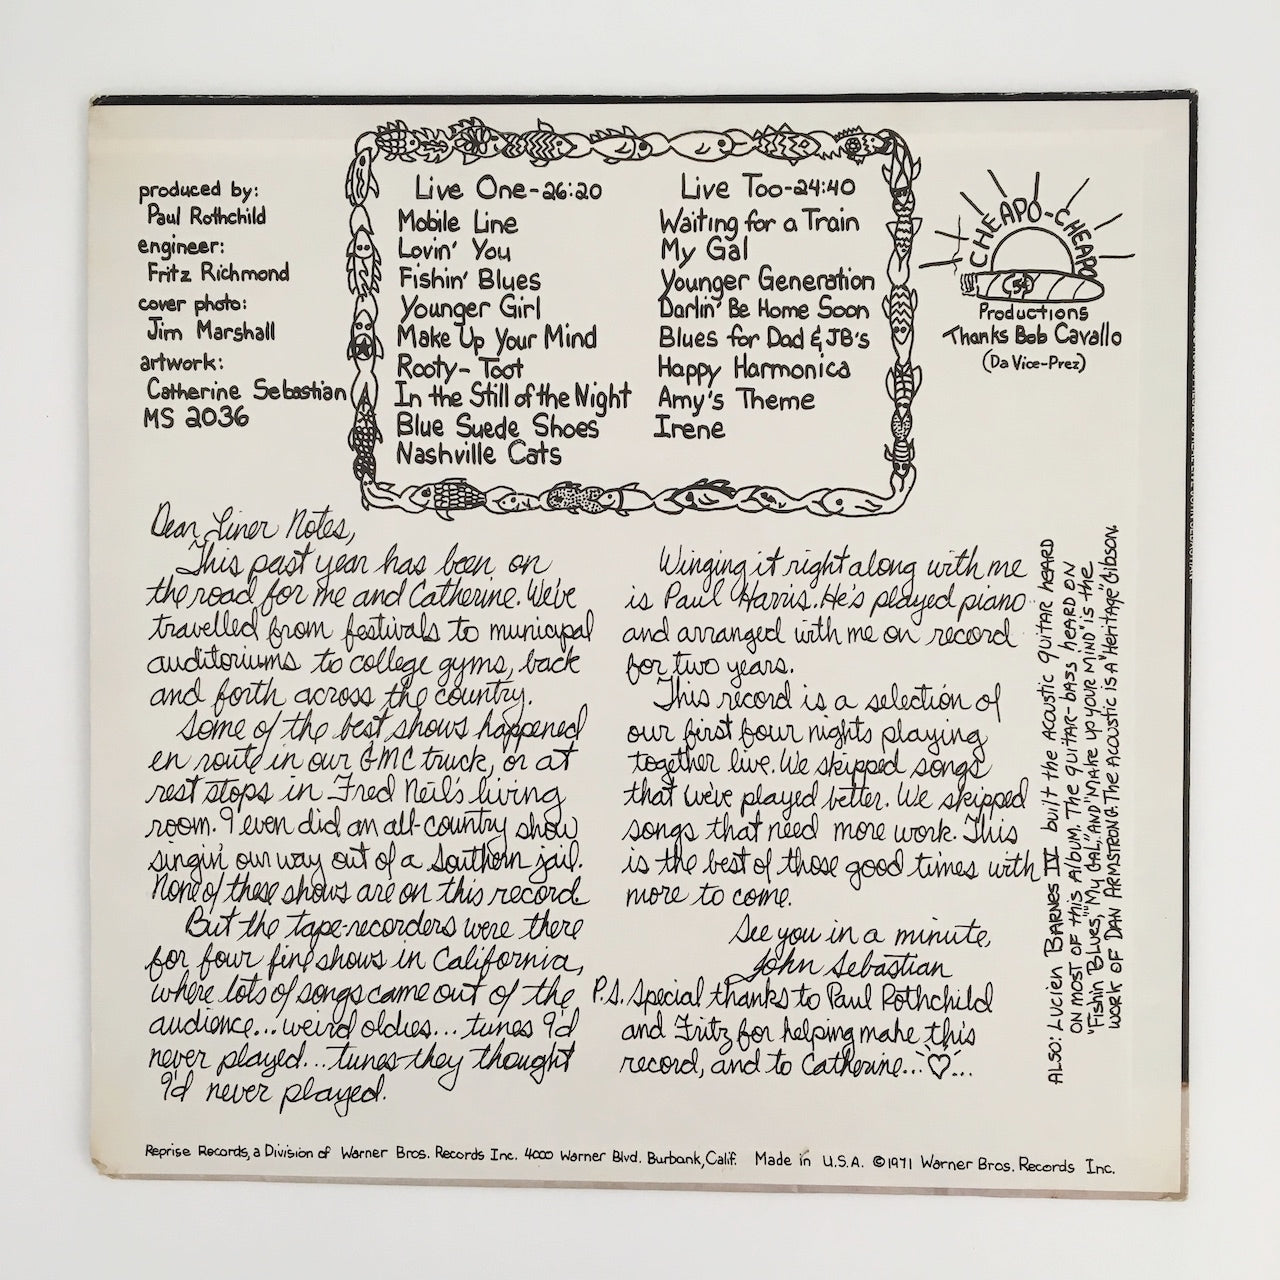 produced by:
Paul Rothchild
engineer:
Fritz Richmond
cover photo:
Jim Marshall
artwork:
Catherine Sebastian
MS 2036
Live One-26:20
Mobile Line
Lovin' You
Fishin' Blues
Younger Girl
Make Up Your Mind
Rooty-Toot
In the Still of the Night
Blue Suede Shoes
Nashville Cats
Live Too-24:40
Waiting for a Train
My Gal
Younger Generation
Darlin' Be Home Soon
Blues for Dad & JB's
Happy Harmonica
Amy's Theme
Irene
CHEAPO-CHEAPO
5¢
Productions
Thanks Bob Cavallo
(Da Vice-Prez)
Dear Liner Notes,
This past year has been on
the road for me and Catherine. We've
travelled from festivals to municipal
auditoriums to college gyms, back
and forth across the country.
Some of the best shows happened
en route in our GMC truck, or at
rest stops in Fred Neil's living
room. I even did an all-country show
singin' our way out of a Southern jail.
None of these shows are on this record.
But the tape-recorders were there
for four fine shows in California,
where lots of songs came out of the
audience...weird oldies...tunes I'd
never played...tunes they thought
I'd never played.
Winging it right along with me
is Paul Harris. He's played piano
and arranged with me on record
for two years.
This record is a selection of
our first four nights playing
together live. We skipped songs
that we've played better. We skipped
songs that need more work. This
is the best of those good times with
more to come.
See you in a minute,
John Sebastian
P.S. Special thanks to Paul Rothchild
and Fritz for helping make this
record, and to Catherine...♡...
ALSO: LUCIEN BARNES IV built the ACOUSTIC GUITAR HEARD
ON MOST OF THIS ALBUM. THE GUITAR-BASS HEARD ON
"FISHIN BLUES," "MY GAL," AND "MAKE UP YOUR MIND" IS the
WORK OF DAN ARMSTRONG. THE ACOUSTIC IS A "HERITAGE" GIBSON.
Reprise Records, a Division of Warner Bros. Records Inc. 4000 Warner Blvd. Burbank, Calif. Made in U.S.A. ©1971 Warner Bros. Records Inc.